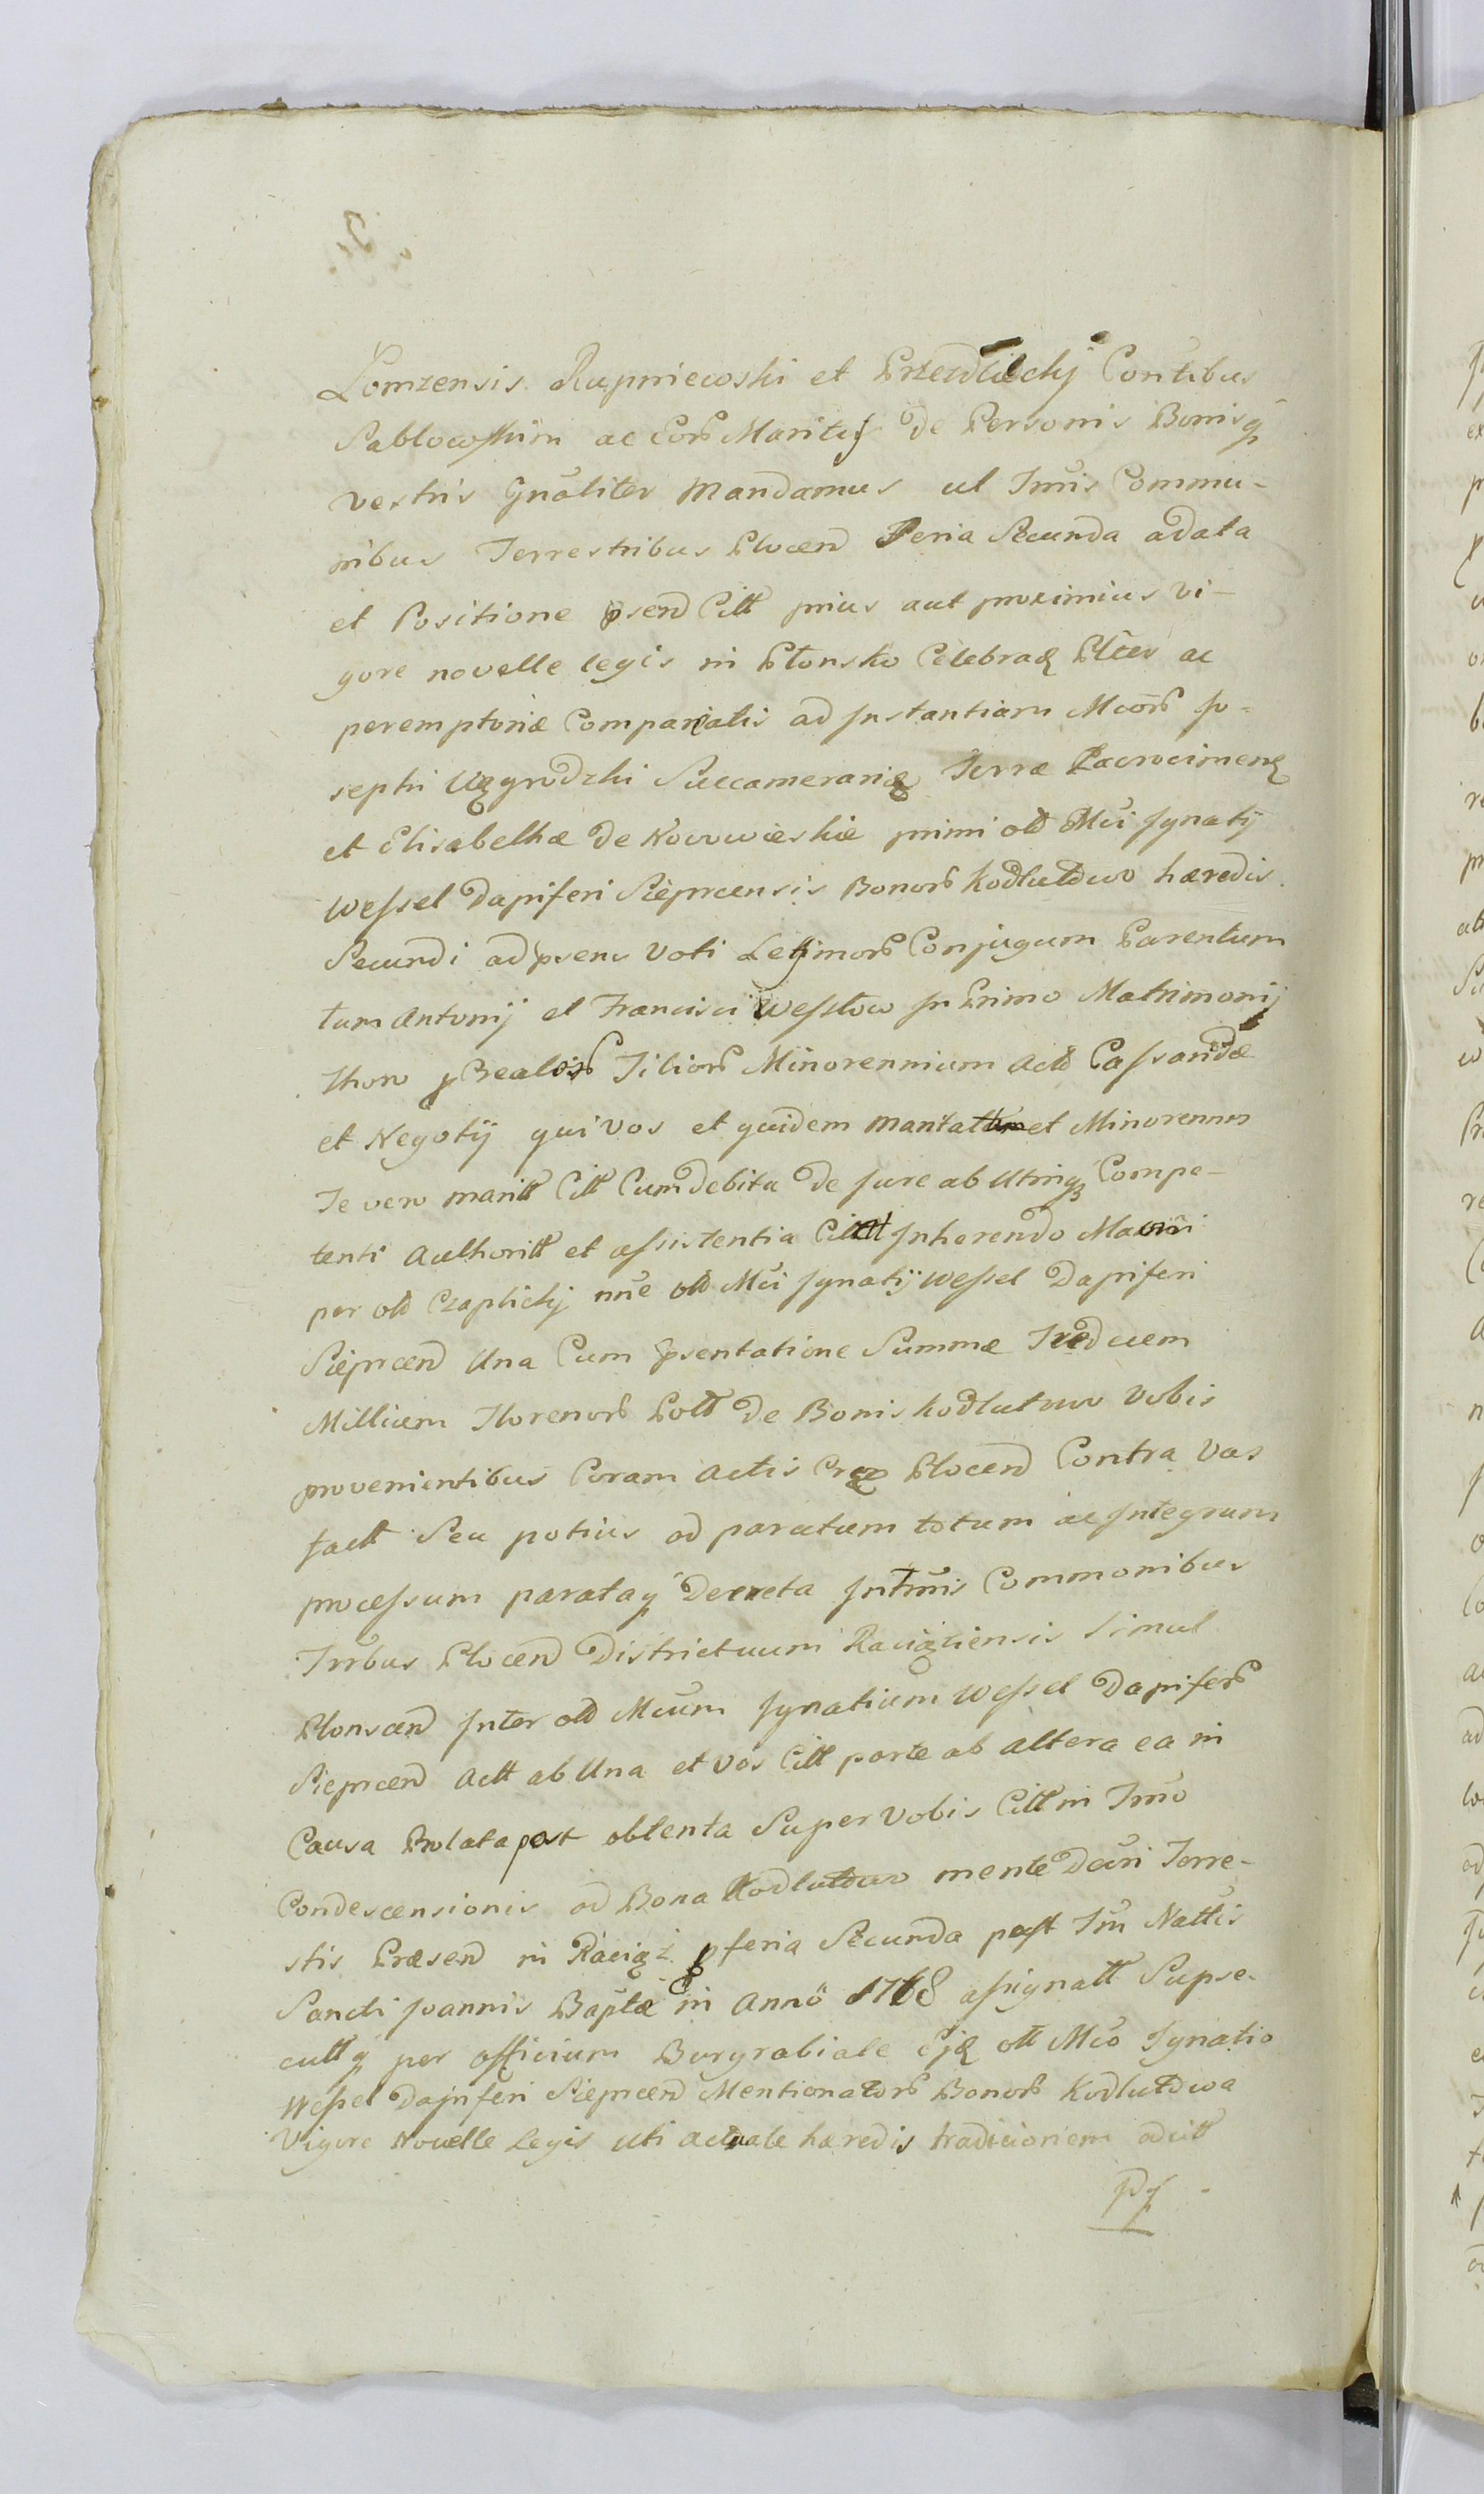 Łomzensis Rupniewski et Przezdzieckij Conttibus
Sabłowskim ac Eord Maritis de Personis Bonisq
vestris Gnãliter Mandamus ut Tmis Commu-
nibus Terrestribus Plocen Feria Secunda a data
et Positione psen Citt prius aut proximius vi-
gore novelle legis in Płonsko Celebrad Pltes ac
peremptorie Compareatis ad Instantiam Mcord Jo-
sephi Uzgrodzki Succamerarii Terræ Zacrocimens
et Elisabethæ de Nowowieskie primi old Mci Ignatij
Wessel Dapiferi Sieprcensis Bonord Kodlutowo hæredis
Secundi ad psens Voti Lettimord Conjugum Parentum
tum Antonij et Francisci Wesslow In Primo Matrimonij
Thoro pcrealord Filiord Minorennium Actd Cassandæ
et Negotij qui vos et quidem et Minorennes
Te vero maritt Citt Cum debita de Jure ab Utrinq Compe-
tenti Authoritt et assistentia Citatt Inherendo
per old Czaplickij nũe old Mci Ignatij Wessel Dapiferi
Sieprcen Una Cum psentatione Summæ Tredecem
Millium Florenord Poltt de Bonis Kodlutowo Vobis
provenientibus Coram Actis Plocen Contra Vos
factt Seu potius ad paratum totum ac Integrum
processum parataq Decreta In Tmis Commonibus
Trrbus Plocen Districtuum Raciąziensis Simul
Plonscen Inter old Mcum Ignatium Wessel Dapiferd
Sieprcen Actt ab Una et Vos Citt parte ab altera ea in
Causa Prolata post obtenta Super Vobis Citt in Tmo
Condescensionis ad Bona Kodlutowo mente Dcri Terre-
stis Præsen in Raciąz pferia Secunda post Tm Nattis
Sancti Joannis Baptæ in Annõ 1768 assignatt Supse-
cuttq per officium Burgrabiale Ejd old Mco Ignatio
Wessel Dapiferi Sieprcen Mentionatord Bonord Kodlutowa
Vigore Novelle Legis Uti actuale hæredis tradicionem